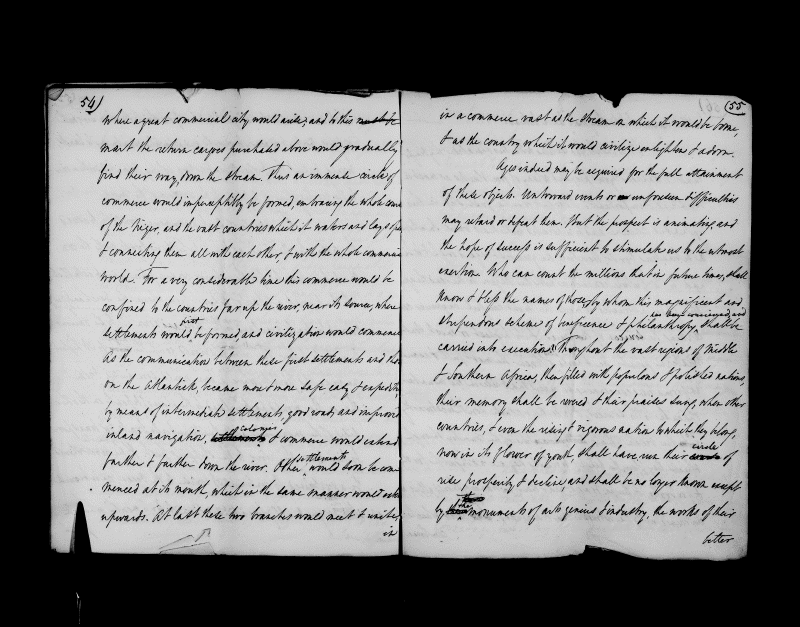 54)
where a great commercial city would arise; and to this must be
mart the return cargoes purchased above would gradually
find their way down the stream. Thus an immense circle of
commerce would imperceptibly be formed, embracing the whole
of the Niger, and the vast countries which it waters and lays open
& connecting them all with each other, & with the whole commercial
world. For a very considerable time this commerce would be
confined to the countries far up the river, near its source, where
first
settlements would be formed, and civilization would commence
As the communication between these first settlements and those
on the Atlantick, became more & more safe easy & expeditious
by means of intermediate settlements, good roads, and improved
colonies
inland navigation, settlements & commerce would extend
settlements
further & further down the river. Other would soon be com
menced at its mouth, which in the same manner would
upwards. At last these two branches would meet & unite,
in
(55
in a commerce vast as the stream on which it would be borne,
& as the country which it would civilize enlighten & adorn.
Ages indeed may be required for the full attainment
of these objects. Untoward events or unforeseen difficulties
may retard or defeat them. But the prospect is animating, and
the hope of success is sufficient to stimulate us to the utmost
exertion. Who can count the millions that in future times, shall
know & bless the names of those, by whom this magnificent and
stupendous scheme of beneficence & philanthropy, shall be
carried into execution? Throughout the vast regions of Middle
& Southern Africa, then filled with populous & polished nations,
their memory shall be revered & their praises sung, when other
countries, & even the rising & vigorous nation to which they belong,
circle
now in its flower of youth, shall have run their of
rise prosperity & decline, and shall be no longer known except
the
by monuments of arts genius & industry, the works of their
better